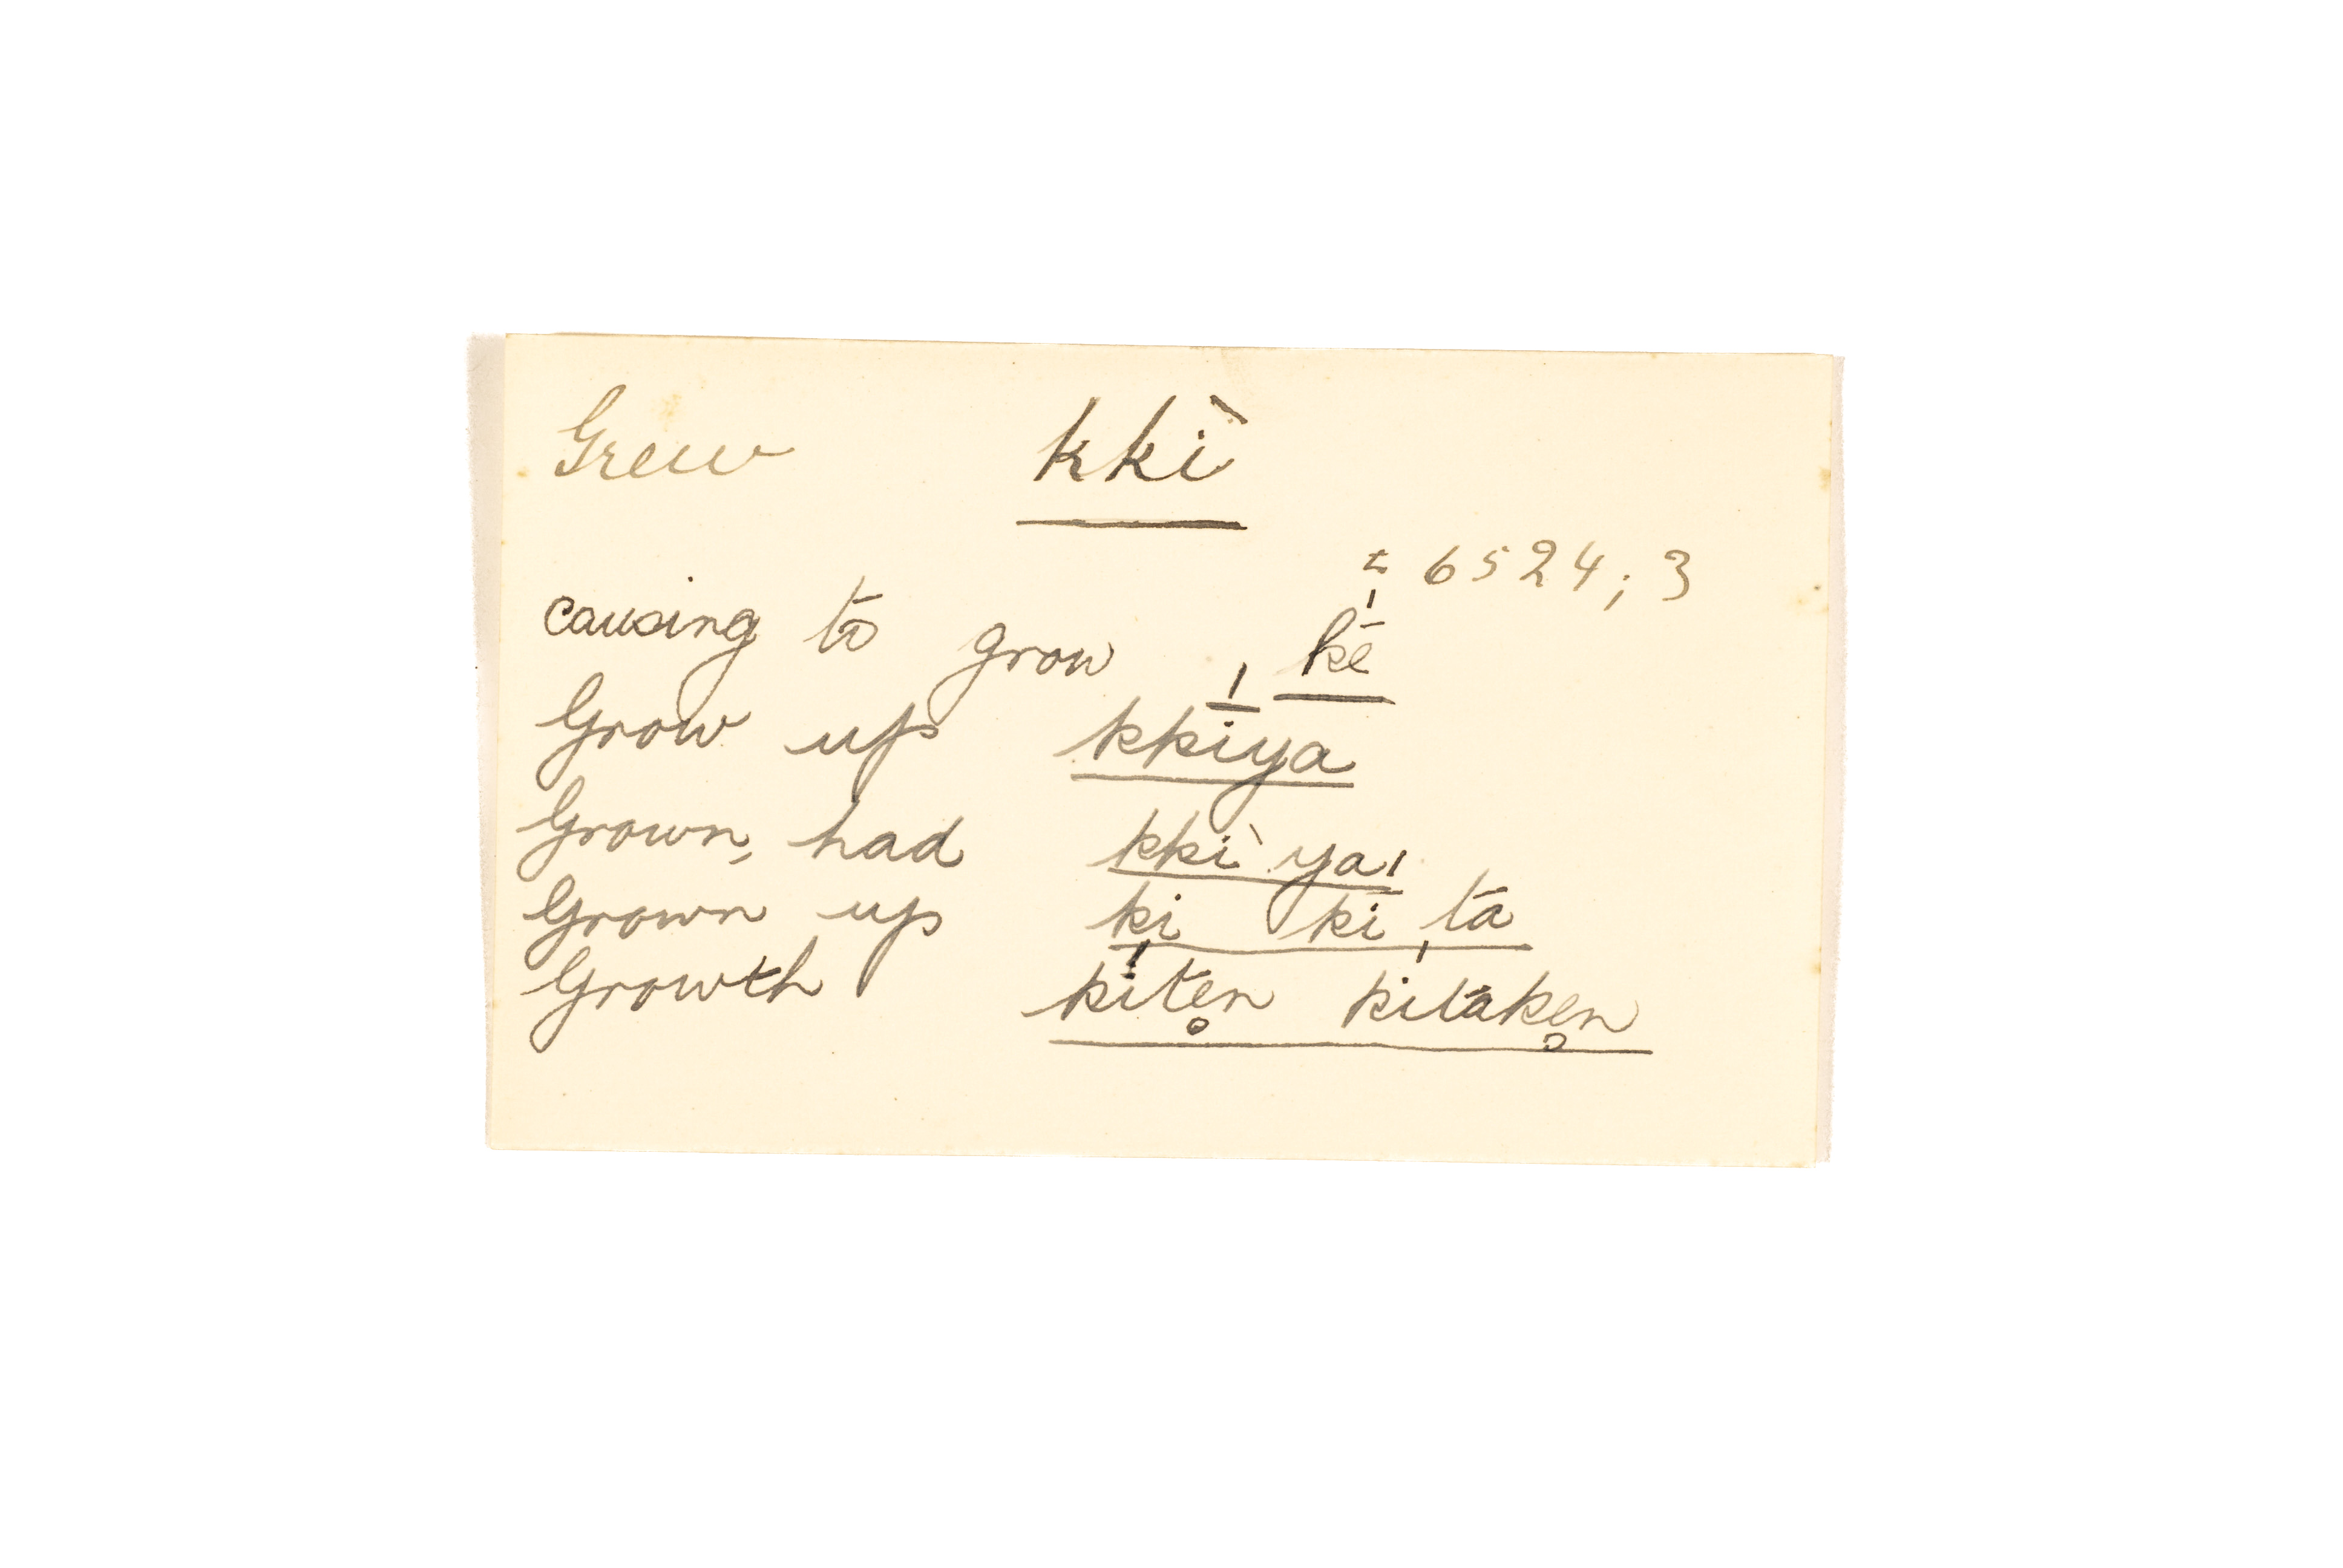 Grew kkì
± 6524; 3
causing to grow kḗ
Grow up kkī́ya
Grown, had kkì ya
Grown up ki kī́ tā
Growth kī́tẹn kitākẹn